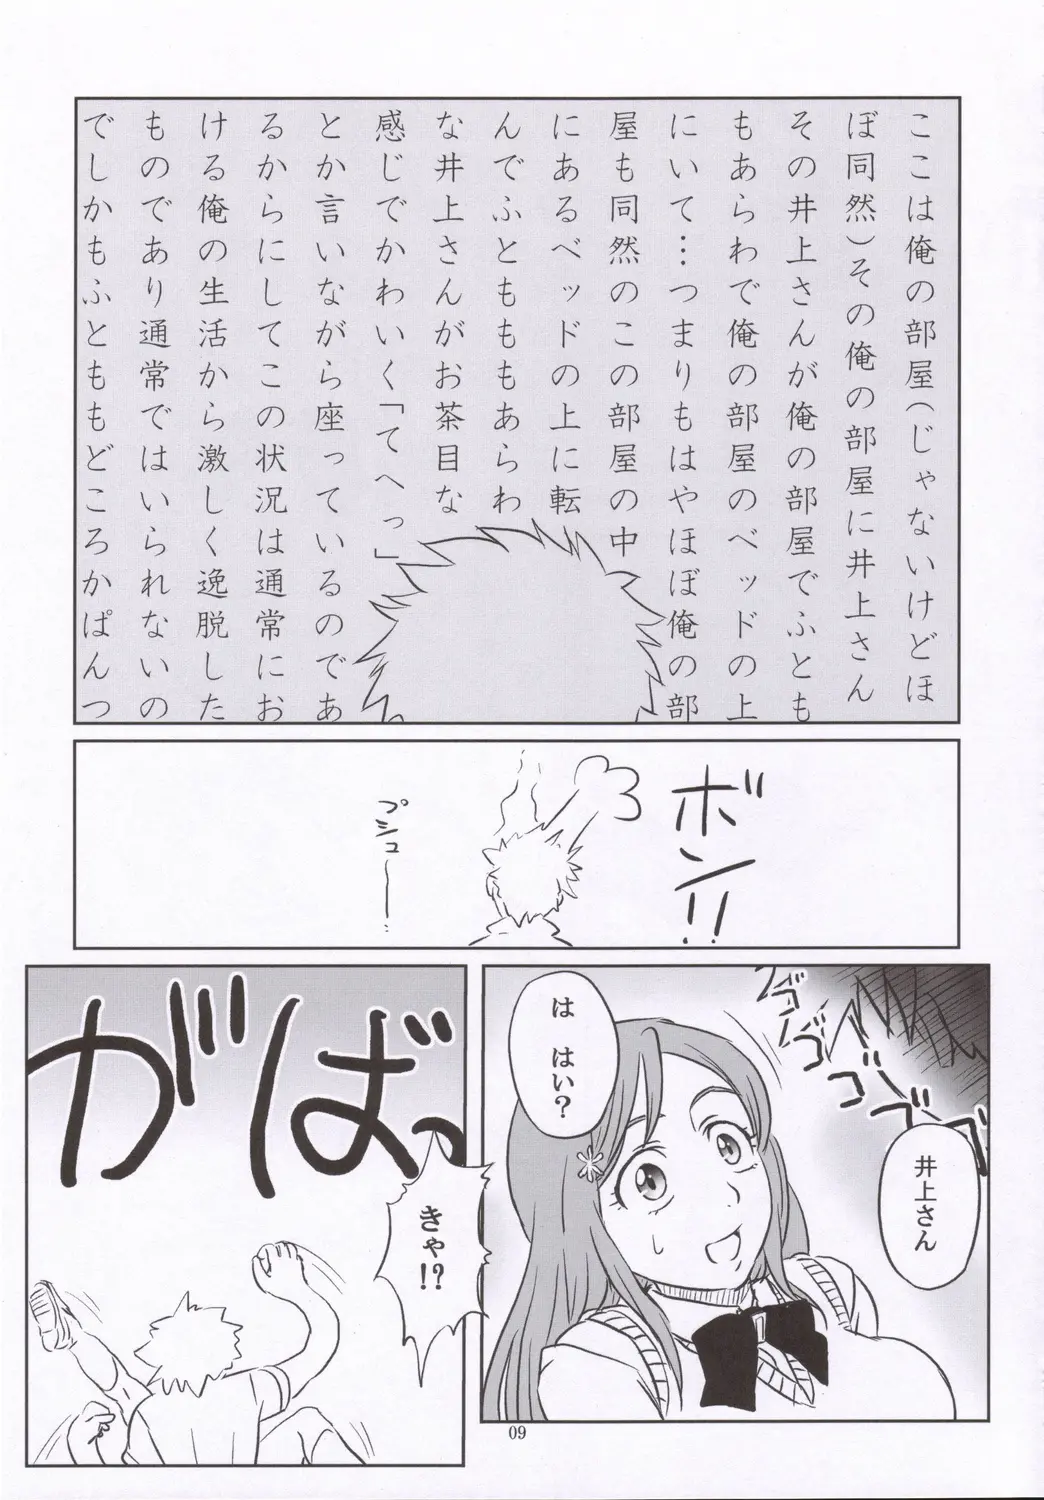 ここは俺の部屋(じゃないけどほ
ぼ同然)その俺の部屋に井上さん
その井上さんが俺の部屋でふとも
もあらわで俺の部屋のベッドの上
にいて…つまりもはやほぼ俺の部
屋も同然のこの部屋の中
にあるベッドの上に転
んでふとももあらわ
な井上さんがお茶目な
感じでかわいく「てへっ」
とか言いながら座っているのであ
るからにしてこの状況は通常にお
ける俺の生活から激しく逸脱した
ものであり通常ではいられないの
でしかもふとももどころかぱんつ
ボン!!
プシュー…
ズズ
ゴゴゴ
ズズ
井上さん
は はい?
がばっ
きゃ!?
09